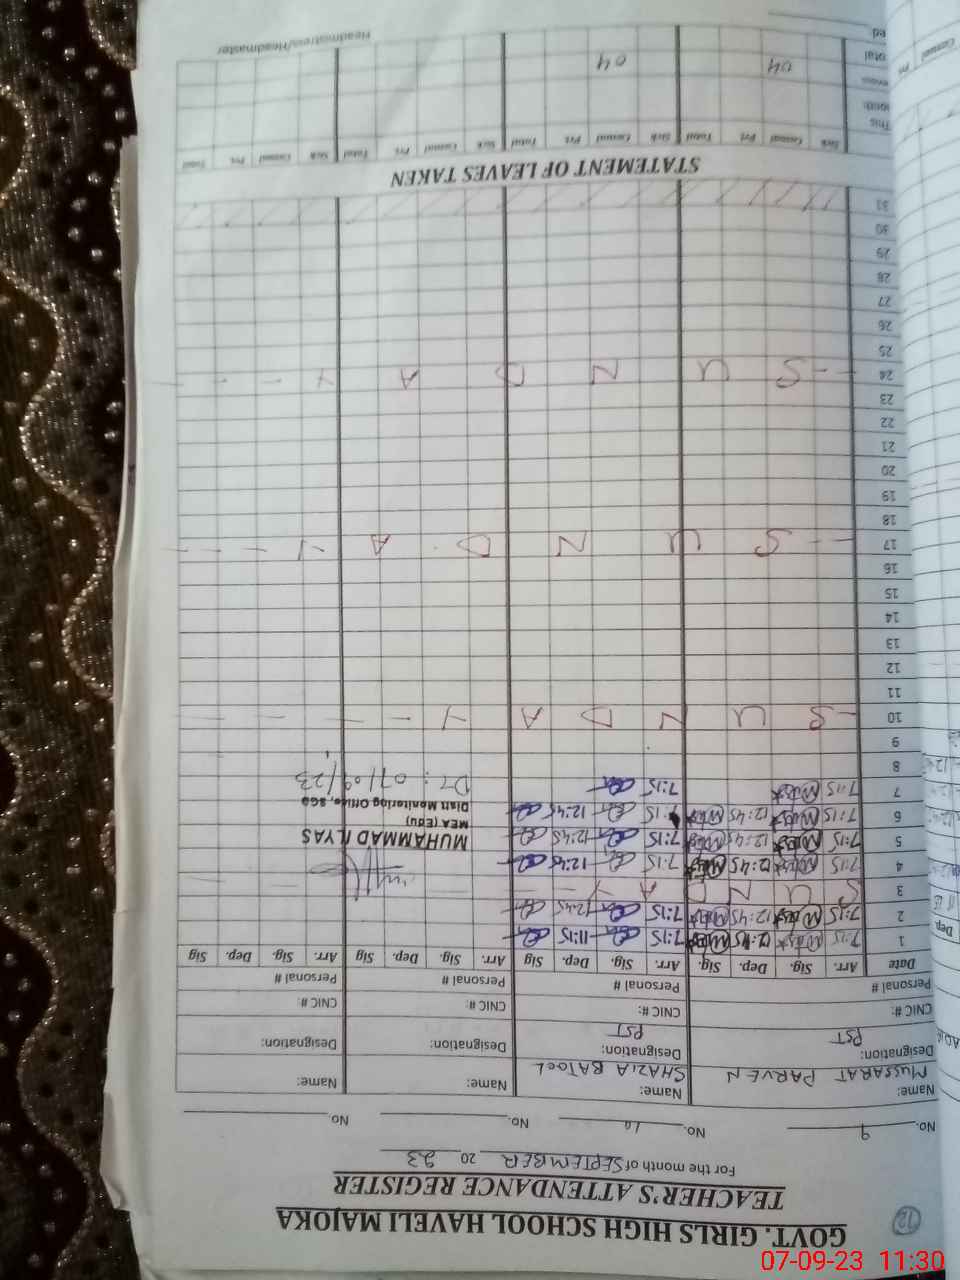 12
GOVT. GIRLS HIGH SCHOOL HAVELI MAJOKA
TEACHER'S ATTENDANCE REGISTER
For the month of SEPTEMBER 20 23
No. 9 No. 10 No. No.
Name: MUSSARAT PARVEN Name: SHAZIA BATOOL Name: Name:
Designation: PST Designation: PST Designation: Designation:
CNIC #: CNIC #: CNIC #: CNIC #:
Personal # Personal # Personal # Personal #
Date Arr. Sig. Dep. Sig Arr. Sig. Dep. Sig Arr. Sig. Dep. Sig Arr. Sig. Dep. Sig
1 7:15 12:45 7:15 11:15
2 7:15 12:45 7:15 12:45
3 S U N D A Y
4 7:15 12:45 7:15 12:45
5 7:15 12:45 7:15 12:45
6 7:15 12:45 7:15 12:45
7 7:15 7:15
MUHAMMAD ILYAS
MEA (Edu)
Distt Monitoring Office, SGD
Dt: 07/09/23
8
9
10 S U N D A Y
11
12
13
14
15
16
17 S U N D A Y
18
19
20
21
22
23
24 S U N D A Y
25
26
27
28
29
30
31
STATEMENT OF LEAVES TAKEN
Sick Casual Pvt. Total Sick Casual Pvt. Total Sick Casual Pvt. Total Sick Casual Pvt. Total
This
04 04
Headmistress/Headmaster
07-09-23 11:30